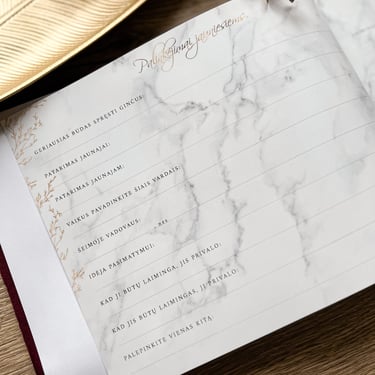 Palinkėjimai jauniesiems
GERIAUSIAS BŪDAS SPRĘSTI GINČUS:
PATARIMAS JAUNAJAI:
PATARIMAS JAUNAJAM:
VAIKUS PAVADINKITE ŠIAIS VARDAIS:
ŠEIMOJE VADOVAUS:
IDĖJA PASIMATYMUI:
KAD JI BŪTŲ LAIMINGA, JIS PRIVALO:
KAD JIS BŪTŲ LAIMINGAS, JI PRIVALO:
PALEPINKITE VIENAS KITĄ: